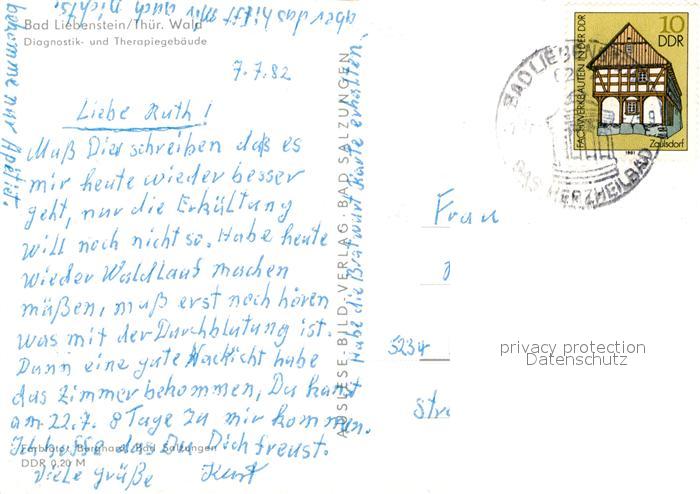 Bad Liebenstein/Thür. Wald
Diagnostik- und Therapiegebäude
7.7.82
Liebe Ruth!
Muß Dir schreiben daß es
mir heute wieder besser
geht, nur die Erkältung
will noch nicht so. Habe heute
wieder Waldlauf machen
müßen, muß erst noch hören
was mit der Durchblutung ist.
Dann eine gute Nachicht habe
das Zimmer bekommen, Du kanst
am 22.7. 8 Tage zu mir kommen.
Ich hoffe das Du Dich freust.
Viele grüße Kurt
Habe die Bratwurst Karte erhalten,
aber das hilft mir auch nichts.
bekomme nur Apetit.
Farbfoto: Borghard, Bad Salzungen
DDR 0,20 M
AUSLESE-BILD-VERLAG · BAD SALZUNGEN
Frau
5234
Str
privacy protection
Datenschutz
10
DDR
FACHWERKBAUTEN IN DER DDR
Zaulsdorf
1981
BAD LIEBENSTEIN
DAS HERZHEILBAD